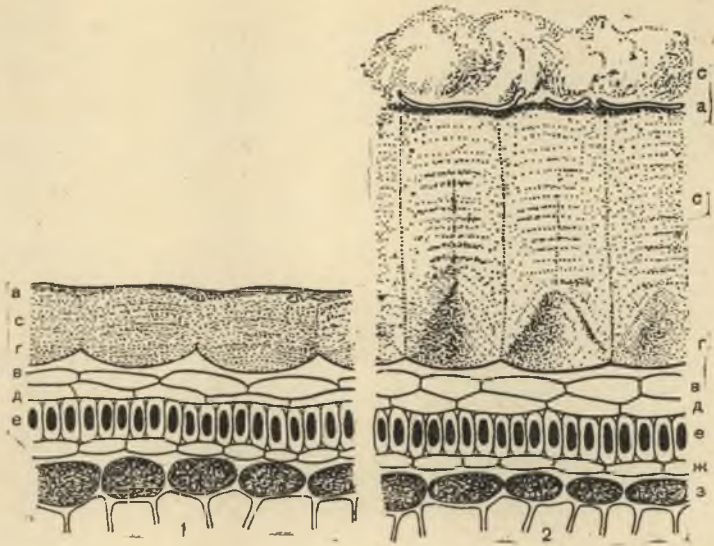 а
с
г
в
д
е
1
с
а
с
г
в
д
е
ж
з
2